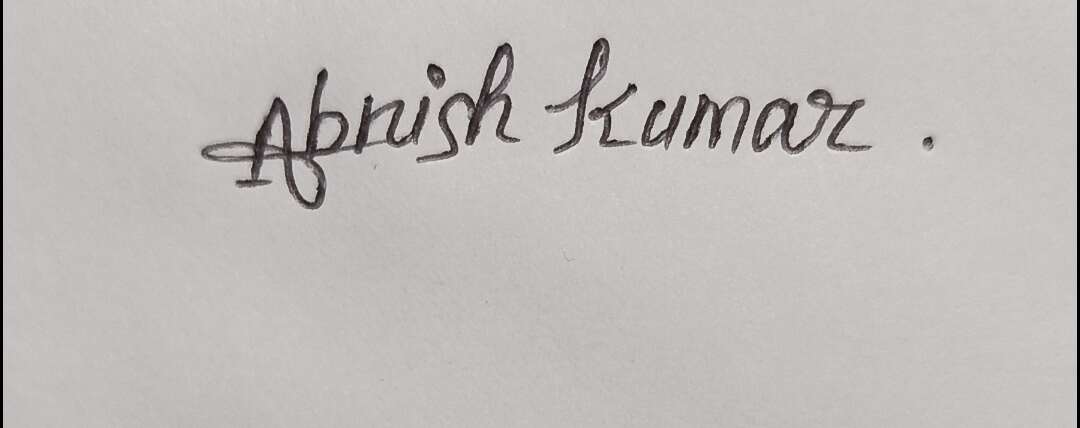 Abnish Kumar.